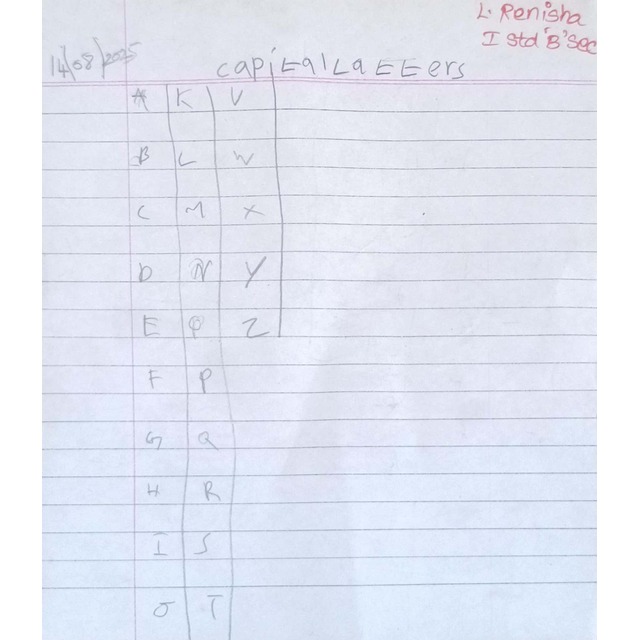 L. Renisha
I std 'B' Sec
14/08/2025
capital Laetters
A K V
B L W
C M X
D N Y
E O Z
F P
G Q
H R
I S
J T